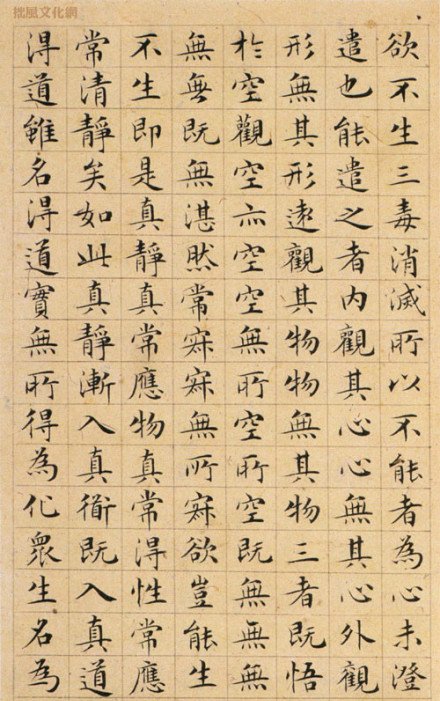 拙風文化網
欲不生三毒消滅所以不能者為心未澄
遣也能遣之者內觀其心心無其心外觀
形無其形遠觀其物物無其物三者既悟
於空觀空亦空空無所空所空既無無無
無無既無湛然常寂寂無所寂欲豈能生
不生即是真靜真常應物真常得性常應
常清靜矣如此真靜漸入真衜既入真道
得道雖名得道實無所得為化眾生名為